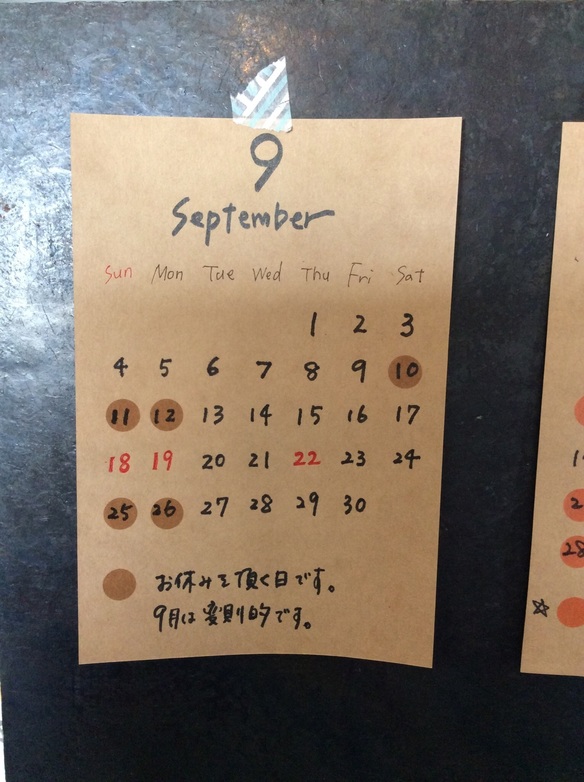 9
September
Sun Mon Tue Wed Thu Fri Sat
1 2 3
4 5 6 7 8 9 10
11 12 13 14 15 16 17
18 19 20 21 22 23 24
25 26 27 28 29 30
お休みを頂く日です。
9月は変則的です。
28
☆